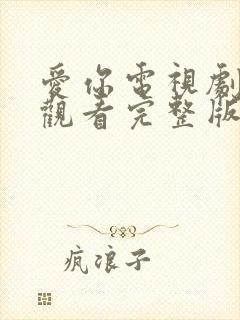 愛你電視劇
觀看完整版
瘋浪子